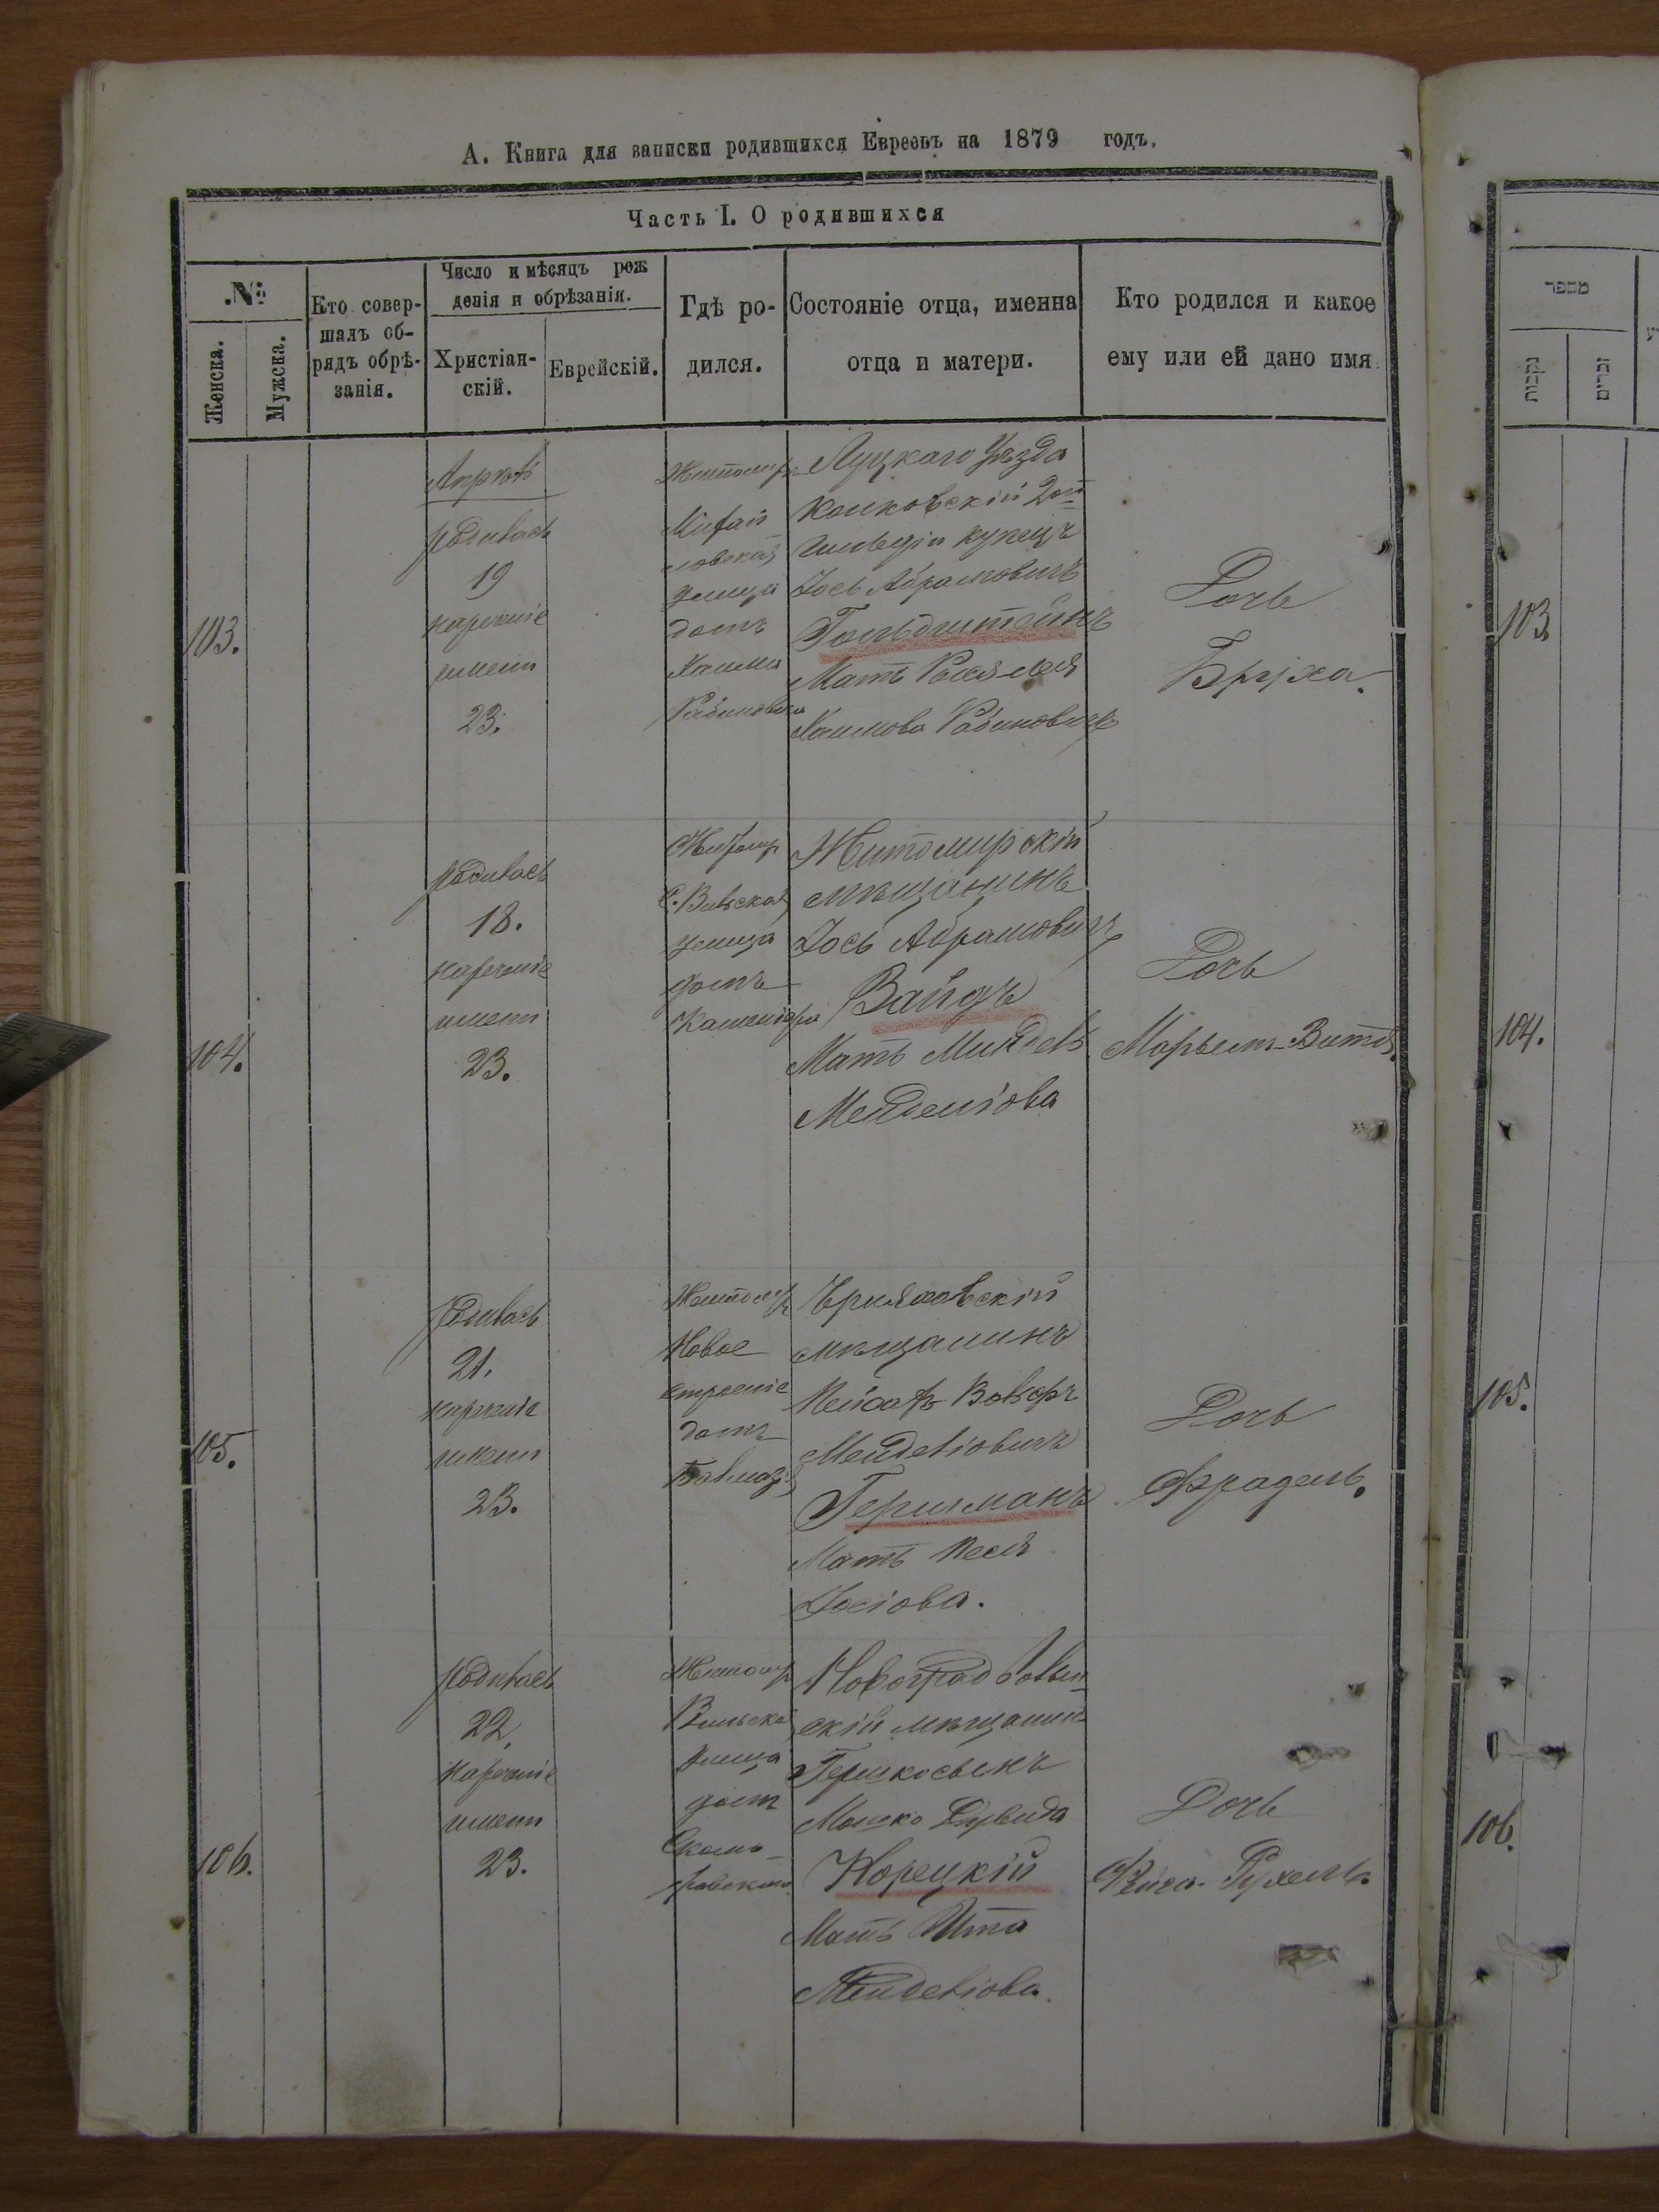 А. Книга для записки родившихся Евреевъ на 1879 годъ.
Часть I. О родившихся
№
Женска.
Мужска.
Кто совер-
шалъ об-
рядъ обрѣ-
занія.
Число и мѣсяцъ рож
денія и обрѣзанія.
Христіан-
скій.
Еврейскій.
Гдѣ ро-
дился.
Состояніе отца, именна
отца и матери.
Кто родился и какое
ему или ей дано имя
103.
Апрѣль
родилась
19
нареченіе
имени
23.
Житомиръ
Михай
ловская
улица
домъ
Хаима
Рабиновича
Луцкаго Уѣзда
Колковскій 2ой
гильдіи купецъ
Іось Абрамовичъ
Гольдштейнъ
Мать
Хаимова Рабиновичъ
Дочь
Бруха.
104.
родилась
18.
нареченіе
имени
23.
Житомир
С. Вильская
улица
домъ
Житомирскій
мѣщанинъ
Іось Абрамовичъ
Вайдъ
Мать Миндель
Менделіова
Дочь
Марьем-Витя.
105.
родилась
21.
нареченіе
имени
23.
Житомиръ
Новое
строеніе
домъ
Черняховскій
мѣщанинъ
Вольфъ
Менделіовичъ
Гершманъ
Мать Песя
Іосіова.
Дочь
Фрадель.
106.
родилась
22.
нареченіе
имени
23.
Житомир
Вильская
улица
домъ
Новоградволын-
скій мѣщанинъ
Гершкосынъ
Мошко Дувида
Корецкій
Мать Ита
Менделіова.
Дочь
Фейга-Рухель.
מספר
נקבות
זכרים
103
104.
105.
106.